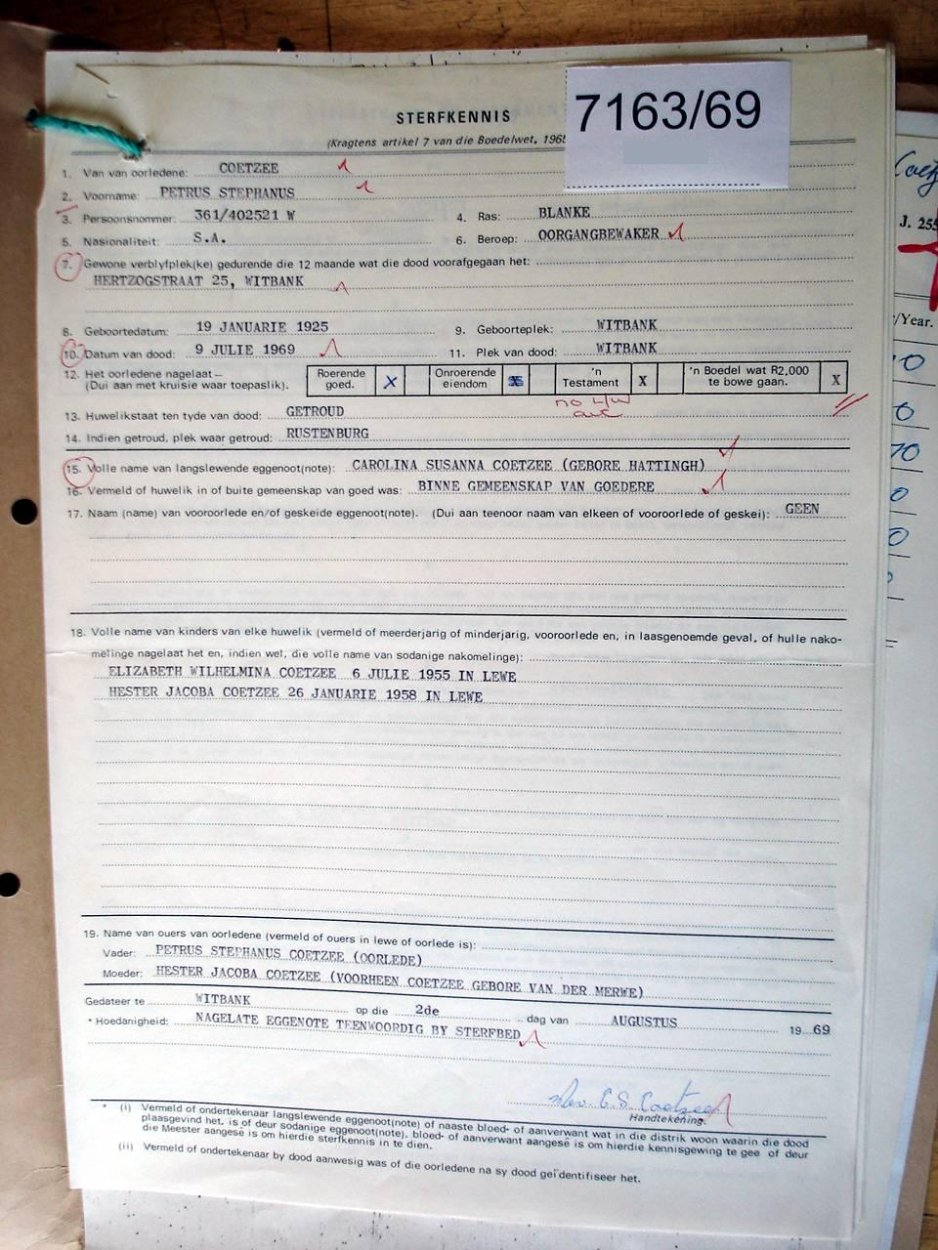 7163/69
STERFKENNIS
(Kragtens artikel 7 van die Boedelwet, 1965
1. Van van oorledene: COETZEE
2. Voorname: PETRUS STEPHANUS
3. Persoonsnommer: 361/402521 W 4. Ras: BLANKE
5. Nasionaliteit: S.A. 6. Beroep: OORGANGBEWAKER
7. Gewone verblyfplek(ke) gedurende die 12 maande wat die dood voorafgegaan het:
HERTZOGSTRAAT 25, WITBANK
8. Geboortedatum: 19 JANUARIE 1925 9. Geboorteplek: WITBANK
10. Datum van dood: 9 JULIE 1969 11. Plek van dood: WITBANK
12. Het oorledene nagelaat— (Dui aan met kruisie waar toepaslik). Roerende goed. X Onroerende eiendom 'n Testament X 'n Boedel wat R2,000 te bowe gaan. X
no
13. Huwelikstaat ten tyde van dood: GETROUD
14. Indien getroud, plek waar getroud: RUSTENBURG
15. Volle name van langslewende eggenoot(note): CAROLINA SUSANNA COETZEE (GEBORE HATTINGH)
16. Vermeld of huwelik in of buite gemeenskap van goed was: BINNE GEMEENSKAP VAN GOEDERE
17. Naam (name) van vooroorlede en/of geskeide eggenoot(note). (Dui aan teenoor naam van elkeen of vooroorlede of geskei): GEEN
18. Volle name van kinders van elke huwelik (vermeld of meerderjarig of minderjarig, vooroorlede en, in laasgenoemde geval, of hulle nako-
melinge nagelaat het en, indien wel, die volle name van sodanige nakomelinge):
ELIZABETH WILHELMINA COETZEE 6 JULIE 1955 IN LEWE
HESTER JACOBA COETZEE 26 JANUARIE 1958 IN LEWE
19. Name van ouers van oorledene (vermeld of ouers in lewe of oorlede is):
Vader: PETRUS STEPHANUS COETZEE (OORLEDE)
Moeder: HESTER JACOBA COETZEE (VOORHEEN COETZEE GEBORE VAN DER MERWE)
Gedateer te WITBANK op die 2de dag van AUGUSTUS 1969
* Hoedanigheid: NAGELATE EGGENOTE TEENWOORDIG BY STERFBED
Mev. C.S. Coetzee
Handtekening.
* (i) Vermeld of ondertekenaar langslewende eggenoot(note) of naaste bloed- of aanverwant wat in die distrik woon waarin die dood
plaasgevind het, is of deur sodanige eggenoot(note), bloed- of aanverwant aangesê is om hierdie kennisgewing te gee of deur
die Meester aangesê is om hierdie sterfkennis in te dien.
(ii) Vermeld of ondertekenaar by dood aanwesig was of die oorledene na sy dood geïdentifiseer het.
J. 255
/Year.